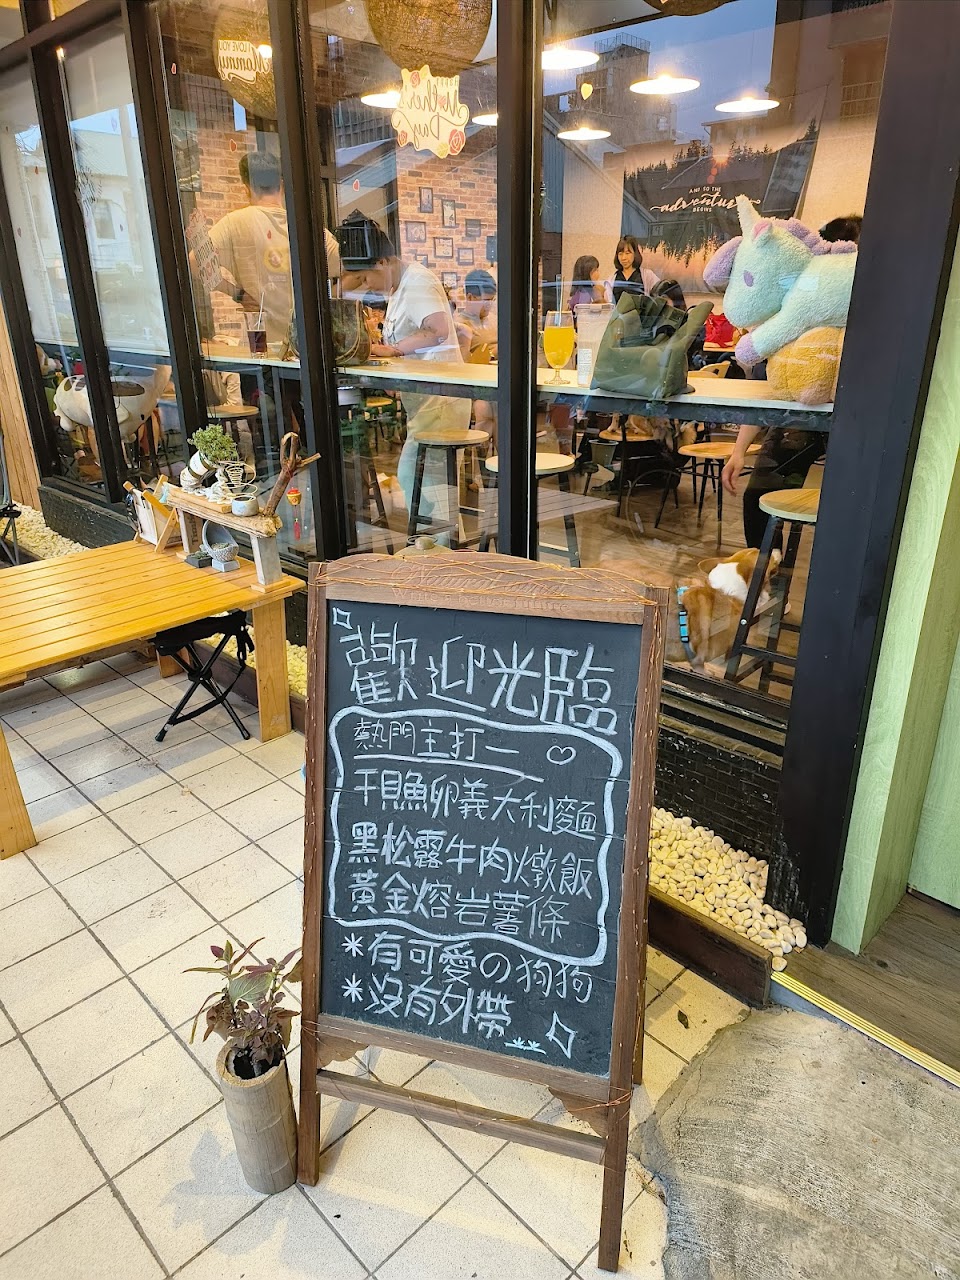 I LOVE YOU
Mommy
Mother's
Day
AND SO THE
adventure
BEGINS
歡迎光臨
熱門主打一
干貝魚卵義大利麵
黑松露牛肉燉飯
黃金熔岩薯條
*有可愛の狗狗
*沒有外帶